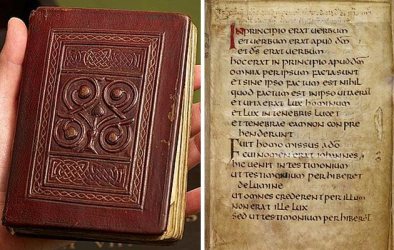 IN PRINCIPIO ERAT UERBUM
ET UERBUM ERAT APUD DM
ET DS ERAT UERBUM
HOC ERAT IN PRINCIPIO APUD DM
OMNIA PER IPSUM FACTA SUNT
ET SINE IPSO FACTUM EST NIHIL
QUOD FACTUM EST IN IPSO UITA EST
ET UITA ERAT LUX HOMINUM
ET LUX IN TENEBRIS LUCET
ET TENEBRAE EAM NON CONPRE
HENDERUNT
FUIT HOMO MISSUS A DO
CUI NOMEN ERAT IOHANNES
HIC UENIT IN TESTIMONIUM
UT TESTIMONIUM PERHIBERET
DE LUMINE
UT OMNES CREDERENT PER ILLUM
NON ERAT ILLE LUX
SED UT TESTIMONIUM PERHIBERET